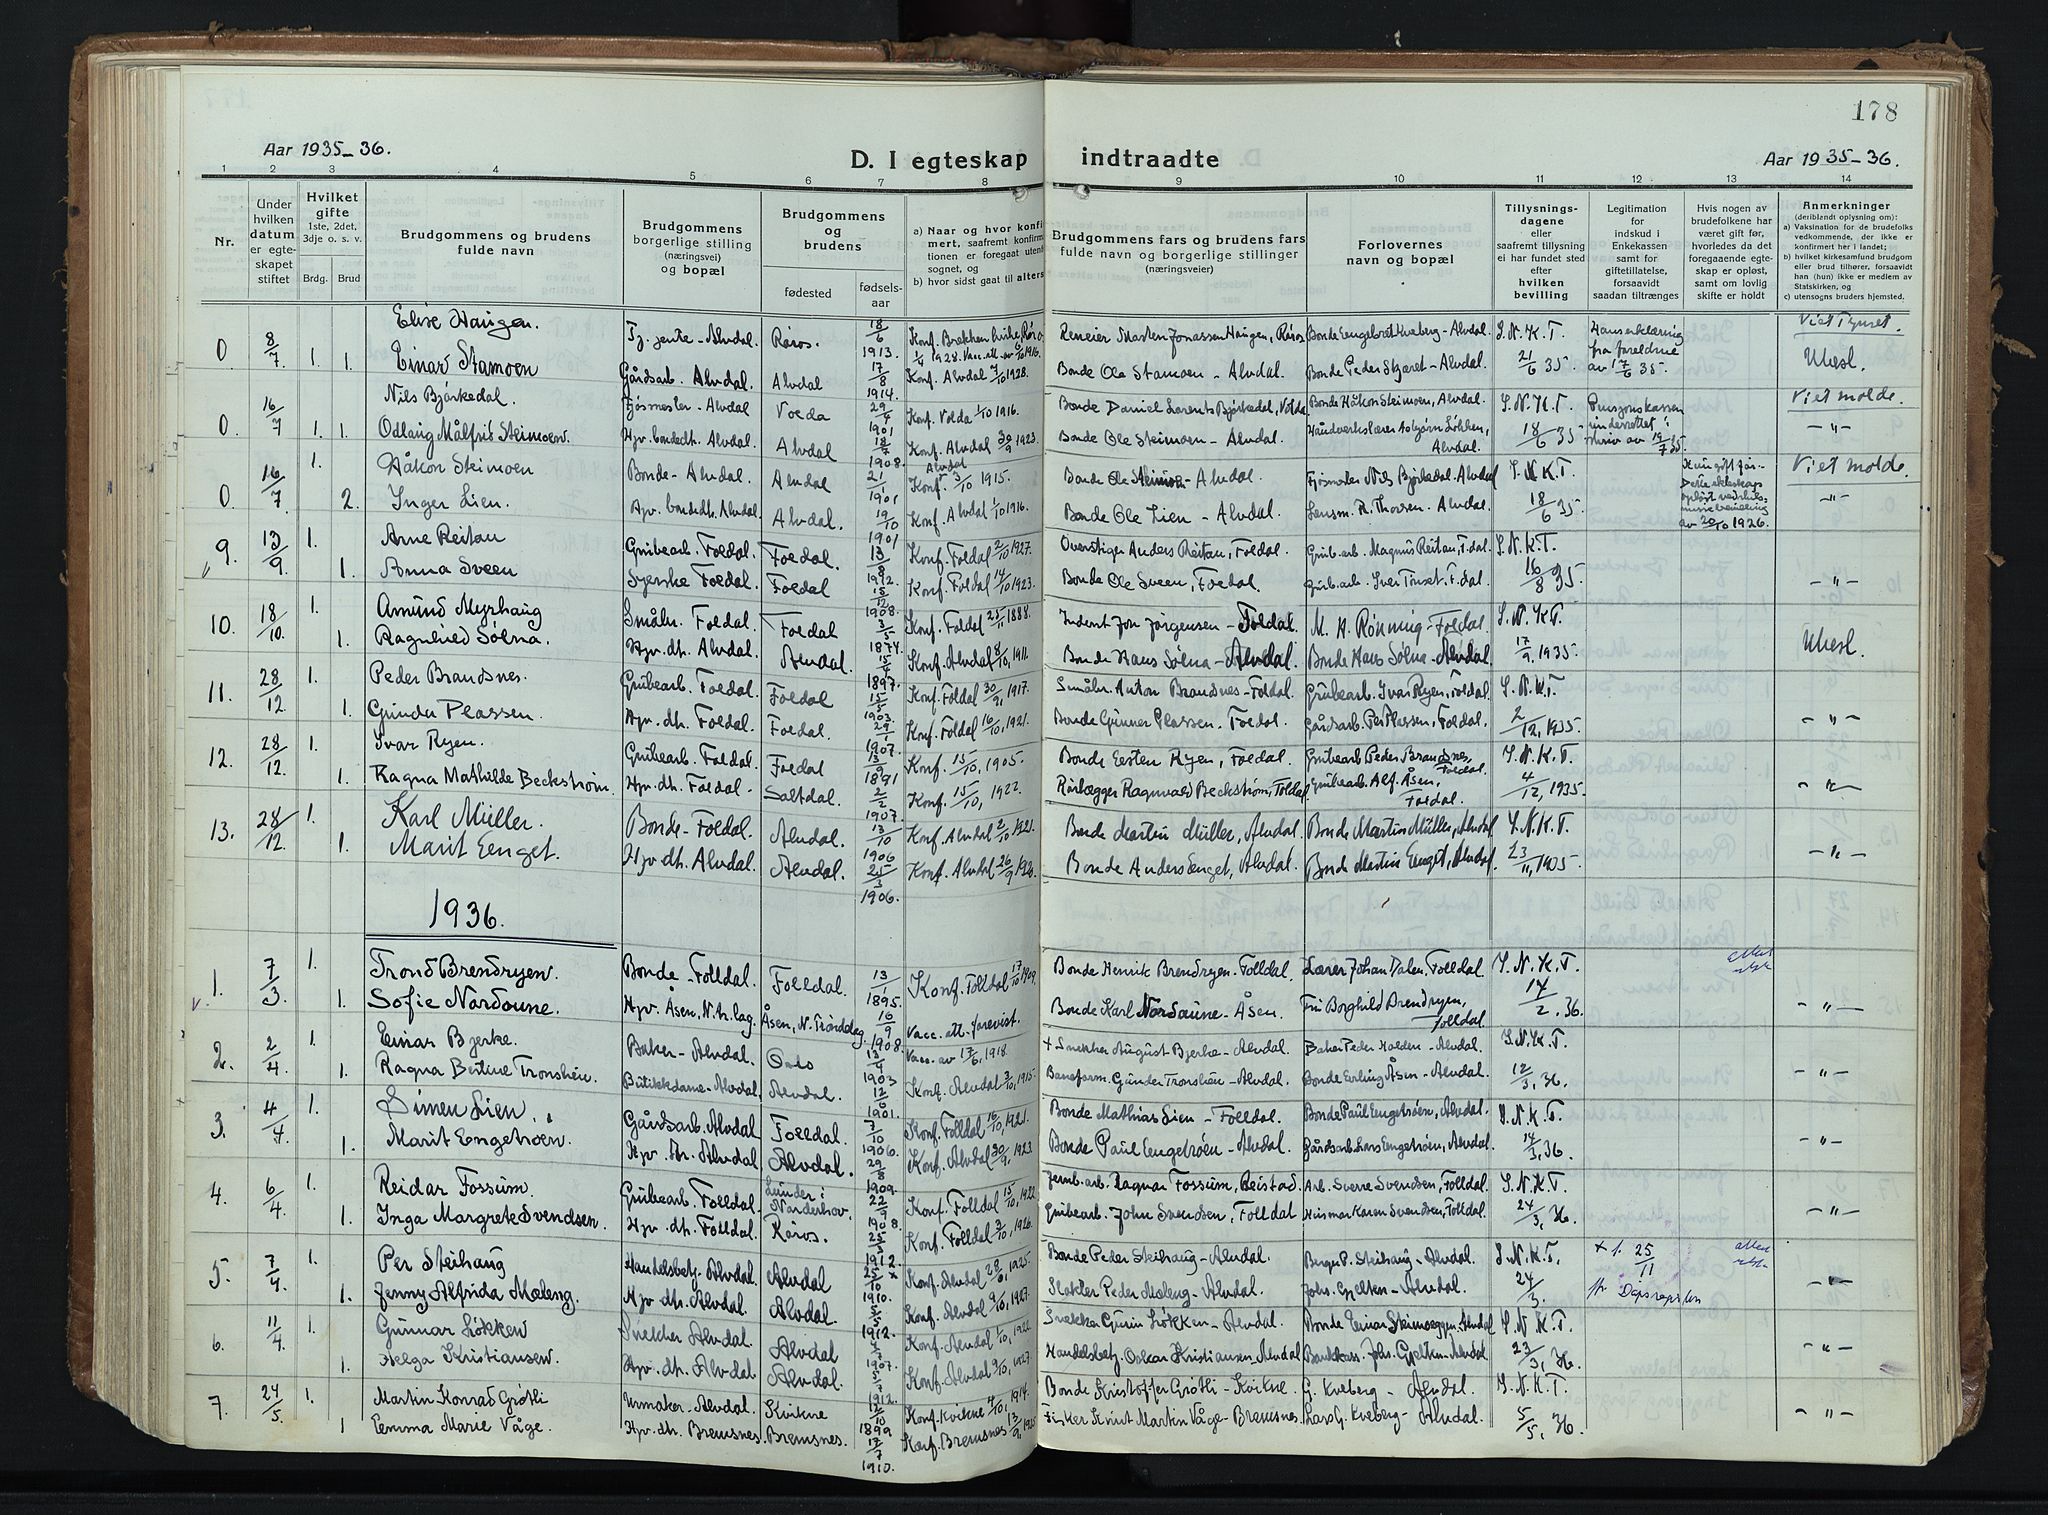 178
Aar 1935-36.
D. I egteskap indtraadte
Aar 1935-36.
1 2 3 4 5 6 7 8 9 10 11 12 13 14
Nr.
Under hvilken datum er egteskapet stiftet
Hvilket gifte 1ste, 2det, 3dje o. s. v.
Brdg. Brud
Brudgommens og brudens fulde navn
Brudgommens borgerlige stilling (næringsvei) og bopæl
Brudgommens og brudens
fødested fødselsaar
a) Naar og hvor konfirmert, saafremt konfirmationen er foregaat utenfor sognet, og
b) hvor sidst gaat til alters
Brudgommens fars og brudens fars fulde navn og borgerlige stillinger (næringsveier)
Forlovernes navn og bopæl
Tillysningsdagene eller saafremt tillysning ei har fundet sted efter hvilken bevilling
Legitimation for indskud i Enkekassen samt for giftetillatelse, forsaavidt saadan tiltrænges
Hvis nogen av brudefolkene har været gift før, hvorledes da det foregaaende egteskap er opløst, samt om lovlig skifte er holdt
Anmerkninger (deriblandt oplysning om):
a) Vaksination for de brudefolks vedkommende, der ikke er konfirmert her i landet;
b) hvilket kirkesamfund brudgom eller brud tilhører, forsaavidt han (hun) ikke er medlem av Statskirken, og
c) utensogns bruders hjemsted.
0 8/7 1. 1. Elise Haugen. Tj. jente - Alvdal Røros. 18/6 1913. Konf. Brekken kirke, Røros 1/1 1928. Reneier Morten Jonassen Haugen, Røros Bonde Engebret Kveberg - Alvdal. S. N. K. T. fra foreldrene av 17/6 35. Viet Tynset.
Einar Stamoen Gårdsarb. Alvdal. Alvdal 17/8 1914. Konf. Alvdal 7/10 1928. Bonde Ole Stamoen - Alvdal. Bonde Peder Stjæret - Alvdal. 21/6 35. Ubesl.
0. 16/7 1. 1. Nils Bjørkedal. Fjøsmester - Alvdal Volda 29/4 1901 Konf. Volda 1/10 1916. Bonde Daniel Larents Bjørkedal, Volda Bonde Håkon Steimoen, Alvdal. S. N. K. T. Pensjonskassen underrettet i skriv av 19/7 35. Viet molde.
Odlaug Målfrid Steimoen. Hjv. bondedtr. Alvdal. Alvdal 18/7 1908. Konf. Alvdal 30/9 1923. Bonde Ole Steimoen - Alvdal. Håndverkslærer Asbjørn Løkken, Alvdal. 18/6 35 - " -
0 16/7 1. Håkon Steimoen Bonde - Alvdal Alvdal 21/1 1901 Konf. Alvdal 3/10 1915. Bonde Ole Steimoen - Alvdal. Fjøsmester Nils Bjørkedal. Alvdal S. N. K. T. Viet molde.
2. Inger Lien. Hjv. bondedtr. Alvdal. Alvdal. 19/10 1901 Konf. Alvdal 1/10 1916. Bonde Ole Lien - Alvdal. Lensm. R. Thorsen. Alvdal. 18/6 35. av 20/10 1926. - " -
9. 13/9. 1. Arne Reitan Grubearb. Folldal. Folldal. 13/8 1912. Konf. Foldal 2/10 1927. Overstiger Anders Reitan, Foldal. Grub. arb. Magnus Reitan, F.dal. S. N. K. T.
1. Anna Sveen Syerske Foldal. Foldal 15/12 1908. Konf. Foldal 14/10 1923. Bonde Ole Sveen, Foldal Grub. arb. Iver Tonset. F.dal. 16/8 35 - " -
10. 18/10. 1. Amund Myrhaug Småbr. Foldal. Foldal 3/5 1874. Konf. Foldal 25/11 1888. Jon Jørgensen - Foldal. M. H. Rønning - Foldal S. N. K. T.
1. Ragnhild Sølna. Hjv. dtr. Alvdal. Alvdal. 15/4 1897. Konf. Alvdal 8/10, 1911. Bonde Hans Sølna - Alvdal. Bonde Hans Sølna - Alvdal 17/9, 1935. Ubesl.
11. 28/12 1. Peder Brandsnes. Grubearb. Foldal. Foldal 15/5 1903. Konf. Foldal 30/9, 1917. Småbr. Anton Brandsnes - Foldal. Grubearb. Ivar Ryen, Foldal S. N. K. T.
1. Gunda Plassen. Hjv. dtr. Foldal. Foldal. 29/1 1907. Konf. Foldal 16/10, 1921. Bonde Gunner Plassen. Foldal. Gårdsarb. Per Plassen, Foldal. 2/12, 1935. - " -
12. 28/12. 1. Ivar Ryen. Grubearb. Foldal. Foldal 13/9 1891 Konf. 15/10, 1905. Bonde Eesten Ryen, Foldal. Grubearb. Peder Brandsnes, Foldal. S. N. K. T.
1. Ragna Mathilde Beckstrøm. Hjv. dtr. Foldal. Saltdal. 2/2 1907. Konf. 15/10, 1922. Rørlægger Ragnvald Beckstrøm, Foldal. Grubearb. Alf. Åsen, Foldal. 4/12, 1935. - " -
13. 28/12. 1. Karl Müller. Bonde - Foldal. Alvdal. 13/10 1906 Konf. Alvdal 2/10 1921. Bonde Martin Müller, Alvdal. Bonde Martin Müller, Alvdal S. N. K. T.
1. Marit Eenget. Hjv. dtr. Alvdal. Alvdal. 25/3 1906. Konf. Alvdal 26/9 Bonde Anders Eenget, Alvdal. Bonde Martin Eenget, Alvdal. 23/11, 1935 - " -
1936.
1. 7/3. 1. Trond Brendryen. Bonde - Folldal. Folldal. 13/1 1895. Konf. Folldal 17/10 1909. Bonde Henrik Brendryen - Folldal. Lærer Johan Dalen, Folldal. S. N. K. T. attest
1. Sofie Nardoune. Hjv. Åsen, N. Tr.lag. Åsen, N. Trøndelag 16/9 1908. Vacc. att. forevist. Bonde Karl Nordaune - Åsen. Fru Borghild Brendryen, Folldal. 14/2. 36. - " -
2. 2/4 Einar Bjerke. Baker - Alvdal. Oslo 13/4 1903 Vacc. av 17/6, 1918. + Snekker August Bjerke - Alvdal. Baker Peder Holden - Alvdal. S. N. K. T.
1. Ragna Bertine Tronshein. Butikkdame - Alvdal. Alvdal. 12/6 1901. Konf. Alvdal 3/10, 1915. Baneform. Gunder Tronshein - Alvdal. Bonde Erling Åsen - Alvdal. 12/3, 36. - " -
3. 4/4 1. Simen Lien. Gårdsarb. Alvdal Folldal. 7/10 1906. Konf. Folldal 16/10, 1921. Bonde Mathias Lien - Folldal. Bonde Paul Engetrøen, Alvdal. S. N. K. T.
1. Marit Engetrøen. Hjv. dtr. Alvdal Alvdal. 29/8 1909. Konf. Alvdal 30/9, 1923. Bonde Paul Engetrøen - Alvdal. Gårdsarb. Lars Engetrøen, Alvdal. 14/3, 36. - " -
4. 6/4. 1. Reidar Fossum. Grubearb. Folldal. Lunder i Norderhov. 22/9 1908. Konf. Folldal 15/10, 1922. Jernb. arb. Ragnar Fossum, Reistad. Arb. Sverre Svendsen, Folldal. S. N. K. T.
1. Inga Margrete Svendsen. Hjv. dtr. Folldal. Røros. 25/3 1912. Konf. Folldal 3/10, 1926. Grubearb. John Svendsen, Folldal Husmor Karen Svendsen, Folldal. 24/3, 36. - " -
5. 7/4. 1. Per Steihaug Handelsbetj. Alvdal Alvdal 25/10 1910. Konf. Alvdal 28/6, 1925. Bonde Peder Steihaug - Alvdal. Berger P. Steihaug - Alvdal. S. N. K. T. + f. 25/11 attest
1. Jenny Alfrida Mæleng. Hjv. dtr. Alvdal. Alvdal. 5/5 1912. Konf. Alvdal 9/10, 1927. Slakter Peder Mæleng - Alvdal. Johs. Gjelten - Alvdal. 24/3. flr Dåpsregisteret - " -
6. 11/4. 1. Gunnar Løkken Snekker Alvdal Alvdal 1907. Konf. Alvdal 1/10, 1922. Snekker Gunn Løkken - Alvdal. Bonde Einar Steimoeggen. Alvdal S. N. K. T.
1. Helga Kristiansen. Hjv. dtr. Alvdal Alvdal. 5/7 1912. Konf. Alvdal 9/10, 1927. Handelsbetj. Oskar Kristiansen - Alvdal Bankkass. Johs. Gjelten - Alvdal 23/3, 36. - " -
7. 24/5. 1. Martin Konrad Grøtli Urmaker - Alvdal. Kvikne 12/10 1899 Konf. Kvikne 4/10, 1914. Bonde Kristoffer Grøtli - Kvikne. G. Kveberg - Alvdal. S. N. K. T.
1 Emma Marie Våge. Hjv. dtr. Bremsnes. Bremsnes. 17/7 1910. Konf. Bremsnes 13/9, 1925 Fisker Knut Martin Våge - Bremsnes Lars G. Kveberg - Alvdal. 5/5, 36. - " -